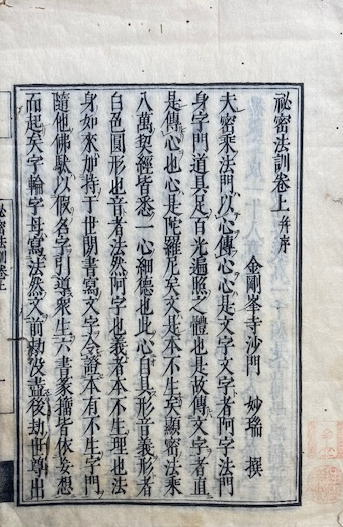 祕密法訓卷上 并序
金剛峯寺沙門 妙瑞 撰
夫密乘法門以心傳心心是文字文字者阿字法門
身字門道具足百光遍照之體也是故傳文字者直
是傳心也心是陀羅尼矣文是本不生矣顯密法乘
八萬契經皆悉一心細德也此心自具形音義形者
白色圓形也音者法然阿字也義者本不生理也法
身如來加持于世間書寫文字令證本有不生字門
隨他佛馱以假名字引導衆生六書篆籀皆依妄想
而起矣字輪字母寫法然文前劫沒盡後劫世尊出
祕密法訓卷上